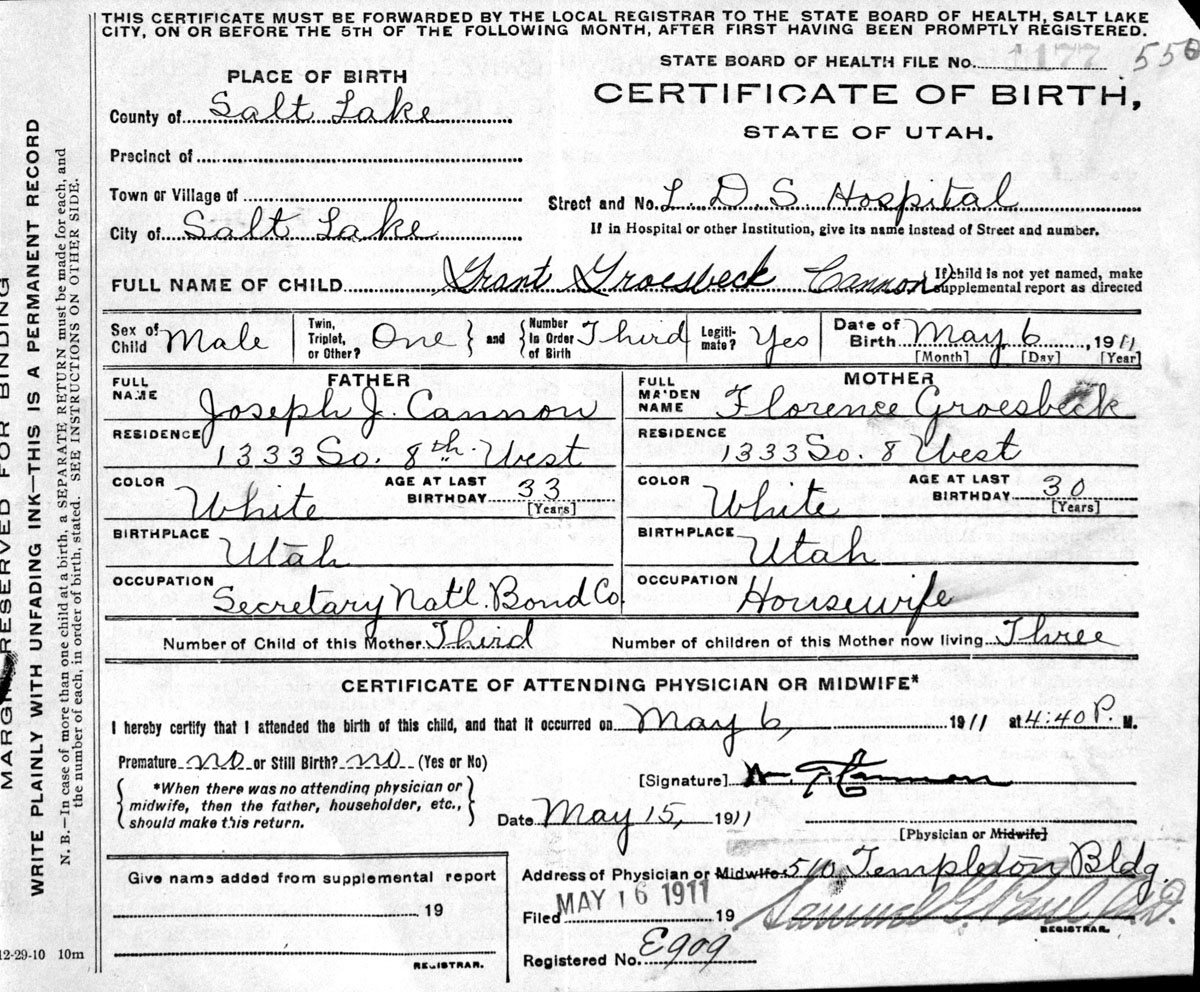 THIS CERTIFICATE MUST BE FORWARDED BY THE LOCAL REGISTRAR TO THE STATE BOARD OF HEALTH, SALT LAKE
CITY, ON OR BEFORE THE 5TH OF THE FOLLOWING MONTH, AFTER FIRST HAVING BEEN PROMPTLY REGISTERED.
STATE BOARD OF HEALTH FILE No. 1177 550
PLACE OF BIRTH
CERTIFICATE OF BIRTH,
STATE OF UTAH.
County of Salt Lake
Precinct of
Town or Village of
Street and No. L. D. S. Hospital
City of Salt Lake
If in Hospital or other Institution, give its name instead of Street and number.
FULL NAME OF CHILD Grant Groesbeck Cannon If child is not yet named, make supplemental report as directed
Sex of Child Male
Twin, Triplet, or Other? One } and { Number in Order of Birth Third
Legitimate? Yes
Date of Birth May 6, 1911
[Month] [Day] [Year]
FATHER
FULL NAME Joseph J. Cannon
RESIDENCE 1333 So. 8th West
COLOR White AGE AT LAST BIRTHDAY 33 [Years]
BIRTHPLACE Utah
OCCUPATION Secretary Nat'l. Bond Co.
MOTHER
FULL MAIDEN NAME Florence Groesbeck
RESIDENCE 1333 So. 8 West
COLOR White AGE AT LAST BIRTHDAY 30 [Years]
BIRTHPLACE Utah
OCCUPATION Housewife
Number of Child of this Mother Third Number of children of this Mother now living Three
CERTIFICATE OF ATTENDING PHYSICIAN OR MIDWIFE*
I hereby certify that I attended the birth of this child, and that it occurred on May 6, 1911 at 4:40 P. M.
Premature no or Still Birth? no (Yes or No)
[Signature] Wm. T. Cannon
*When there was no attending physician or
midwife, then the father, householder, etc.,
should make this return.
Date May 15, 1911
[Physician or Midwife]
Address of Physician or Midwife 510 Templeton Bldg.
Give name added from supplemental report
19
REGISTRAR.
Filed MAY 16 1911 19 Samuel G. Paul M.D.
REGISTRAR.
Registered No. E909
12-29-10 10m
MARGIN RESERVED FOR BINDING
WRITE PLAINLY WITH UNFADING INK—THIS IS A PERMANENT RECORD
N. B.—In case of more than one child at a birth, a SEPARATE RETURN must be made for each, and
the number of each, in order of birth, stated. SEE INSTRUCTIONS ON OTHER SIDE.